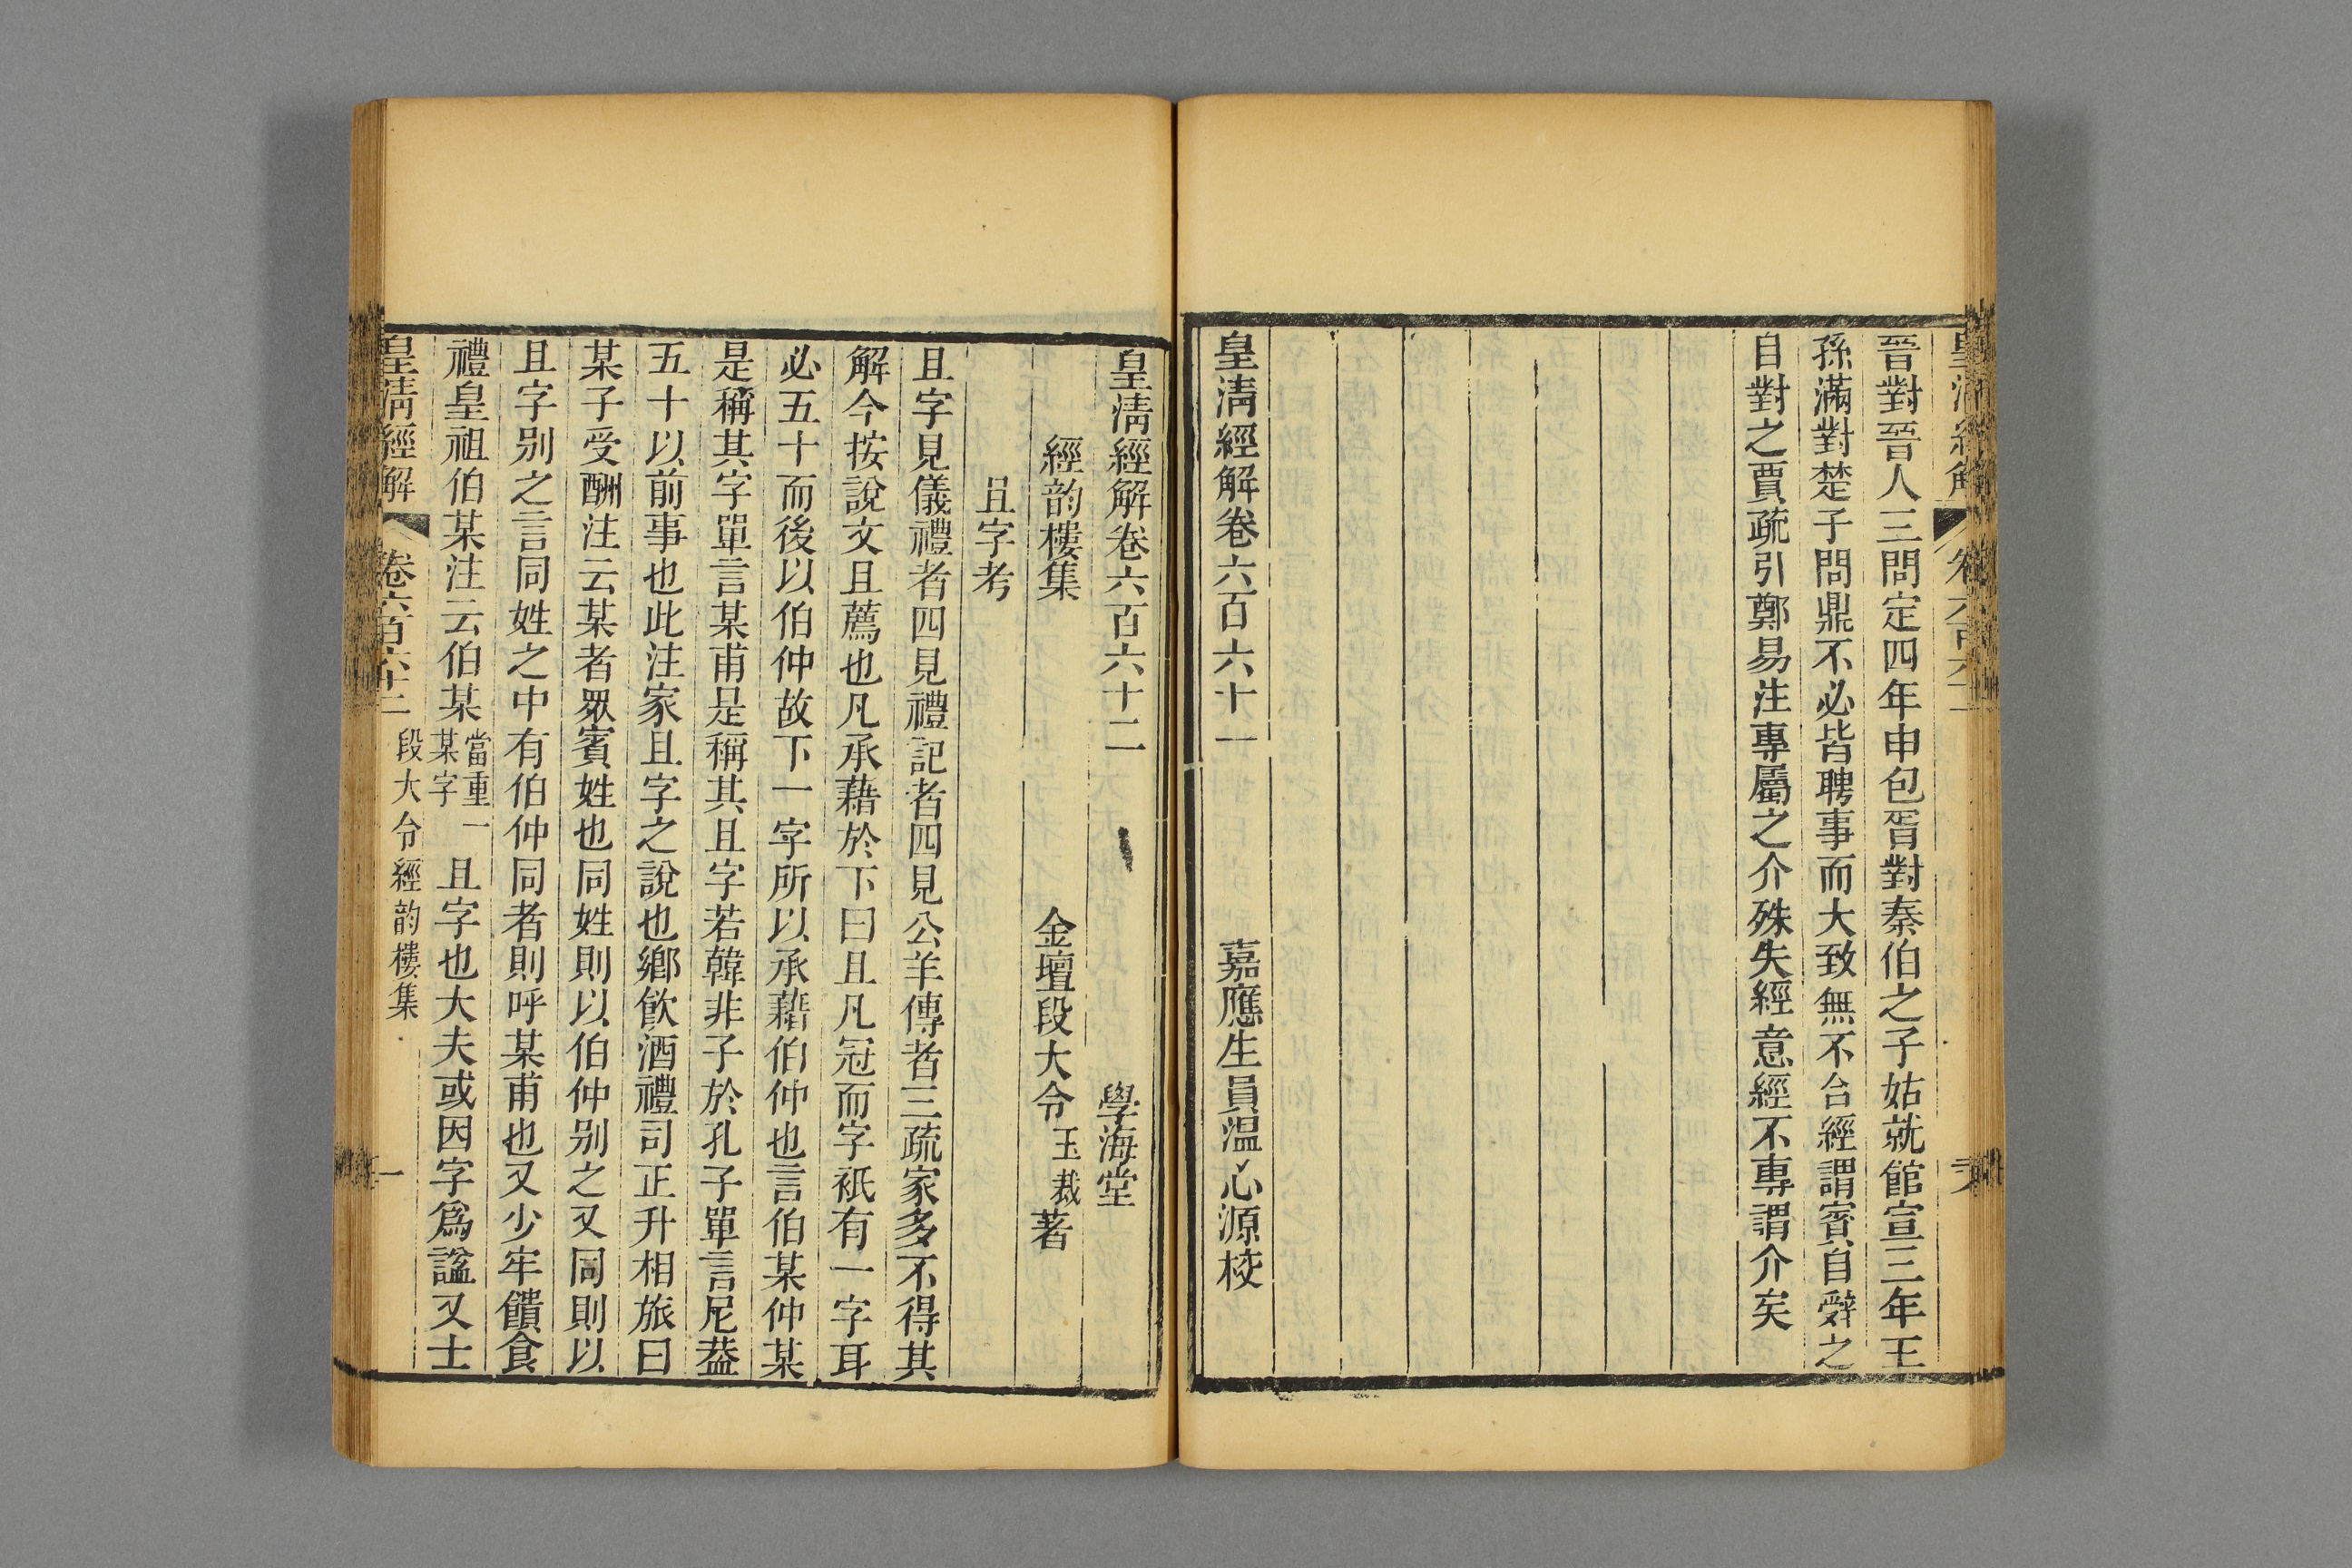 晉對晉人三問定四年申包胥對秦伯之子姑就館宣三年王
孫滿對楚子問鼎不必皆聘事而大致無不合經謂賓自辭之
自對之賈疏引鄭易注專屬之介殊失經意經不專謂介矣
皇淸經解卷六百六十一 嘉應生員温心源校
皇淸經解卷六百六十二 學海堂
經韵樓集 金壇段大令玉裁著
且字考
且字見儀禮者四見禮記者四見公羊傳者三疏家多不得其
解今按說文且薦也凡承藉於下曰且凡冠而字衹有一字耳
必五十而後以伯仲故下一字所以承藉伯仲也言伯某仲某
是稱其字單言某甫是稱其且字若韓非子於孔子單言尼葢
五十以前事也此注家且字之說也鄉飲酒禮司正升相旅曰
某子受酬注云某者眾賓姓也同姓則以伯仲别之又同則以
且字别之言同姓之中有伯仲同者則呼某甫也又少牢饋食
禮皇祖伯某注云伯某當重一某字且字也大夫或因字爲諡又士
皇淸經解 卷六百六十二 段大令經韵樓集 一